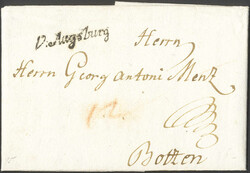 V. Augsburg
Herrn
Herrn Georg Antoni Menz
Botzen